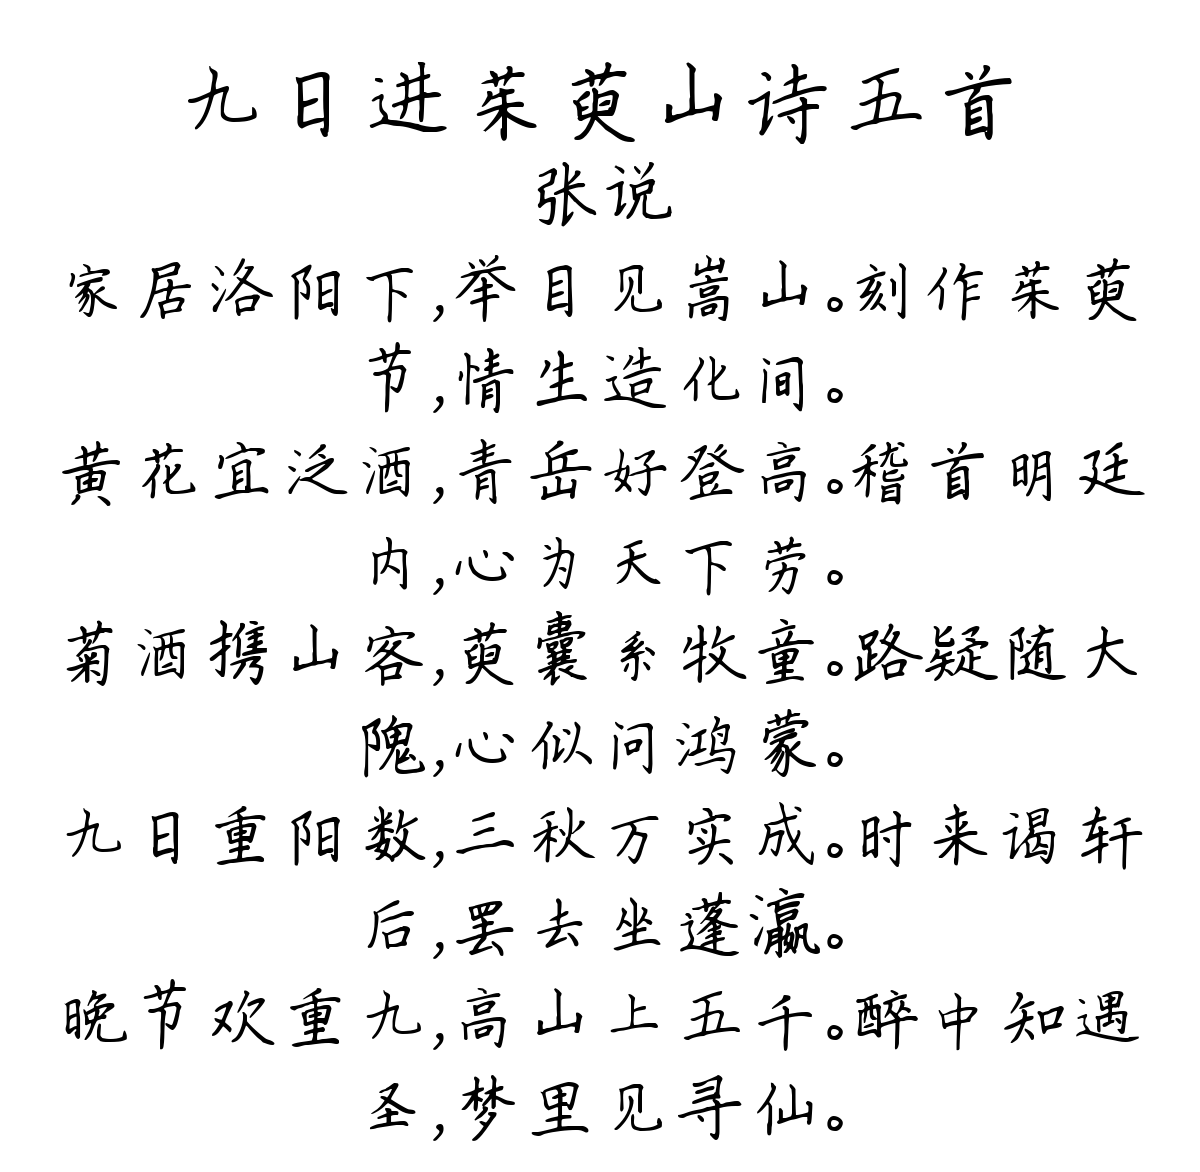 九日进茱萸山诗五首
张说
家居洛阳下,举目见嵩山。刻作茱萸
节,情生造化间。
黄花宜泛酒,青岳好登高。稽首明廷
内,心为天下劳。
菊酒携山客,萸囊系牧童。路疑随大
隗,心似问鸿蒙。
九日重阳数,三秋万实成。时来谒轩
后,罢去坐蓬瀛。
晚节欢重九,高山上五千。醉中知遇
圣,梦里见寻仙。